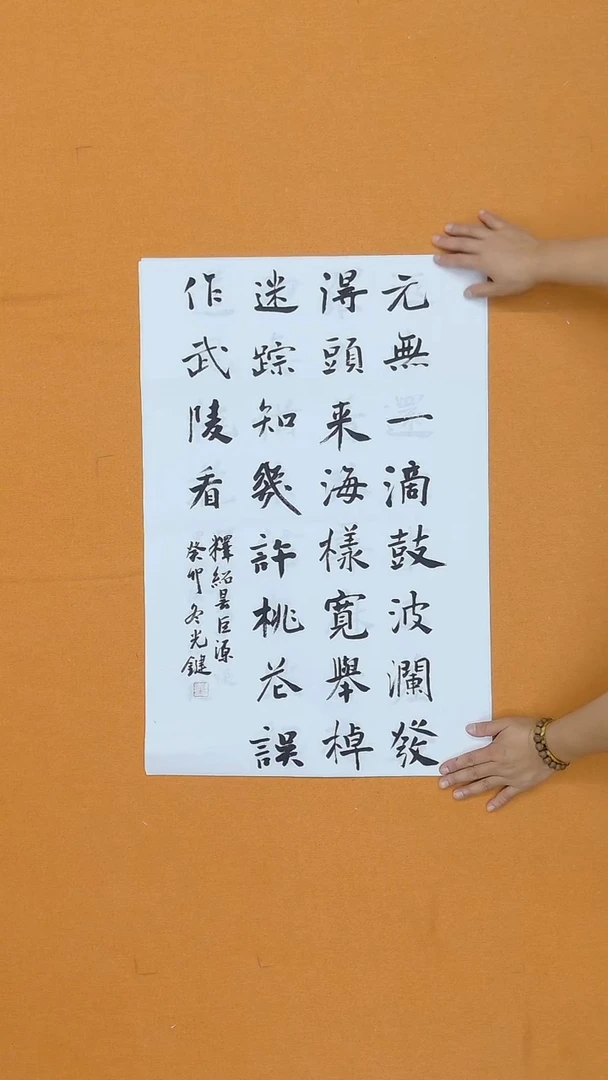 元無一滴鼓波瀾發
得頭来海樣寬舉棹
迷踪知幾許桃花誤
作武陵看
釋紹曇巨源
癸卯冬光鍵